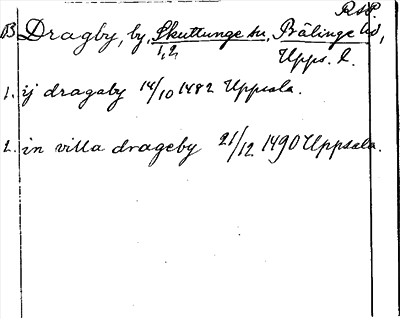 B Dragby, by, Skuttunge sn, Bälinge hd,
1, 2 Upps. l.
1. ij dragaby 14/10 1482 Uppsala.
2. in villa drageby 21/12 1490 Uppsala.